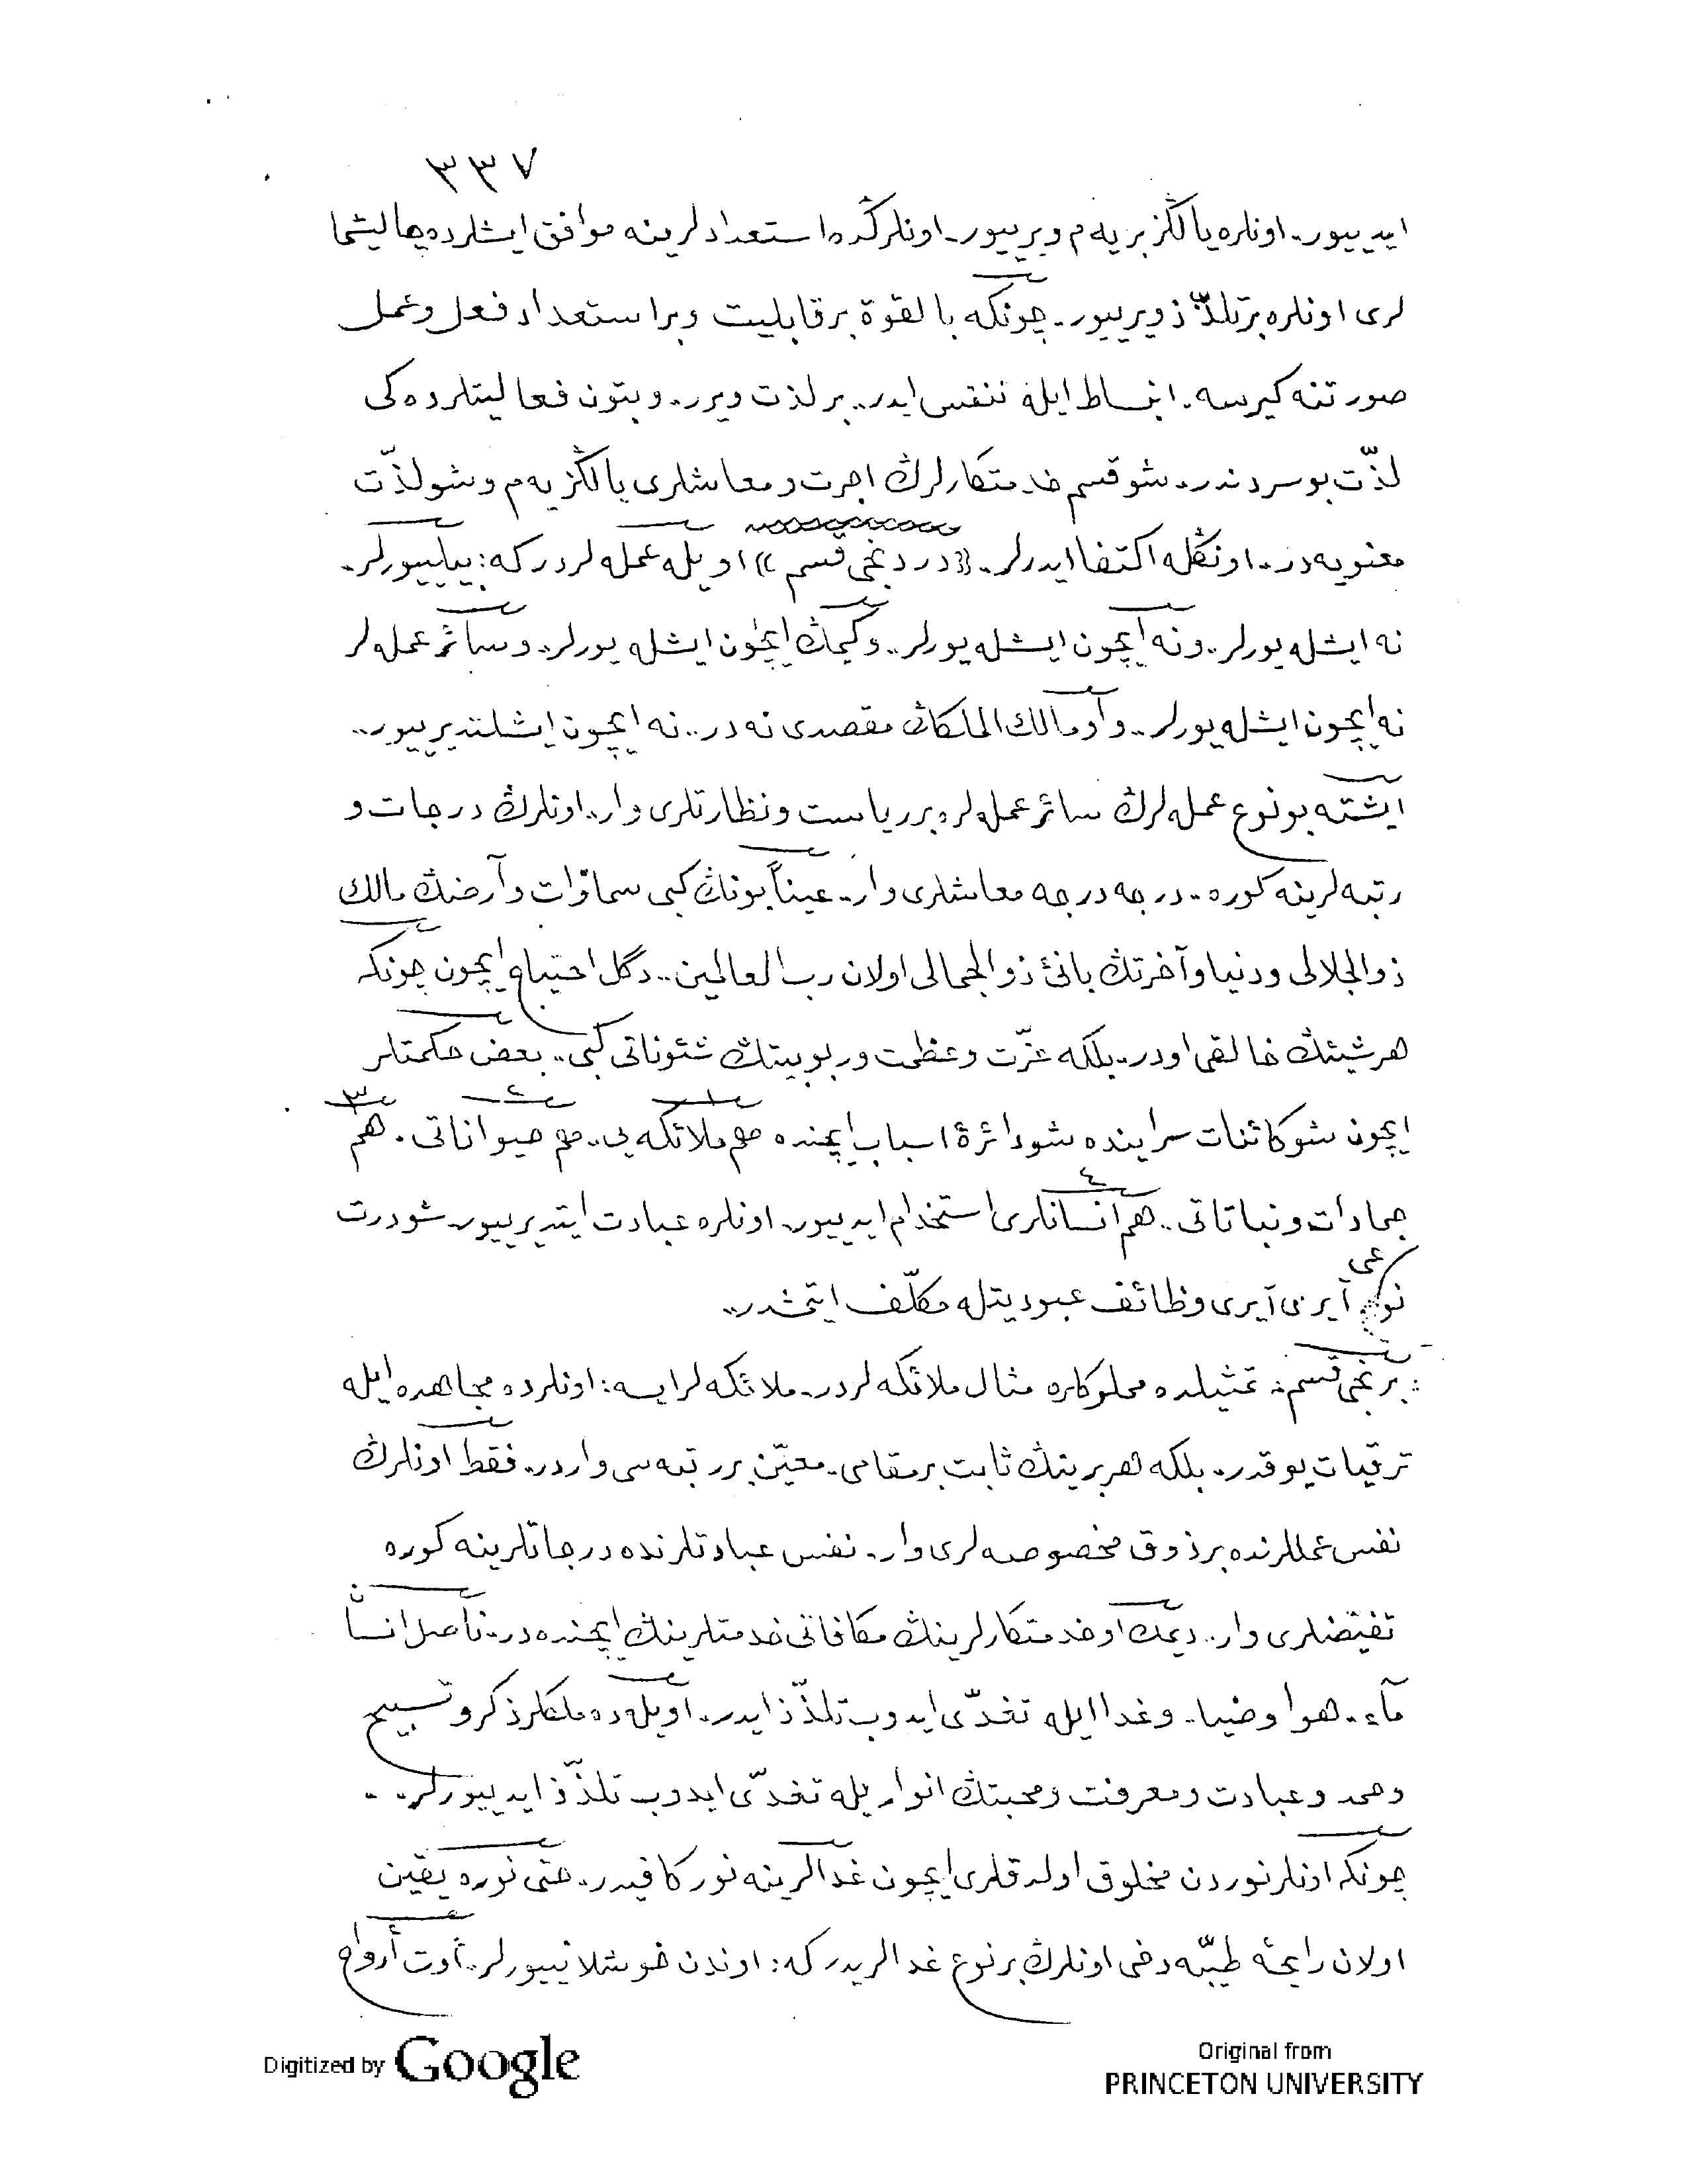 ٣٣٧
ايدييور. اونلره يالڭز بر يه م ويرييور. اونلرڭده استعدادلرينه موافق ايشلرده چاليشما
لرى اونلره بر تلذّذ ويرييور. چونكه بالقوة بر قابليت و بر استعداد فعل و عمل
صورتنه كيرسه. انبساط ايله تنفس ايدر.. بر لذت ويرر.. و بتون فعاليتلرده كى
لذّت بو سردندر. شو قسم خدمتكارلرڭ اجرت و معاشلرى يالڭز يه م و شو لذّت
معنويه در.. اونڭله اكتفا ايدرلر. «دردنجى قسم» اويله عمله لردر كه: بيلييورلر.
نه ايشله يورلر.. و نه ايچون ايشله يورلر.. و كيمڭ ايچون ايشله يورلر.. و سائر عمله لر
نه ايچون ايشله يورلر.. و او مالك الملكڭ مقصدى نه در.. نه ايچون ايشلتديرييور..
ايشته بو نوع عمله لرڭ سائر عمله لره بر رياست و نظارتلرى وار. اونلرڭ درجات و
رتبه لرينه كوره.. درجه درجه معاشلرى وار. عيناً بونڭ كبى سماوات و أرضڭ مالك
ذوالجلالى و دنيا و آخرتڭ بانئ ذوالجمالى اولان رب العالمين.. دگل احتياج ايچون چونكه
هر شيئڭ خالقى اودر. بلكه عزّت و عظمت و ربوبيتڭ شئوناتى كبى.. بعض حكمتلر
ايچون شو كائنات سراينده شو دائرۀ اسباب ايچنده هم ملائكه يى.. هم حيواناتى. هم
جمادات و نباتاتى.. هم انسانلرى استخدام ايدييور. اونلره عبادت ايتديرييور. شو درت
نوعى آيرى آيرى وظائف عبوديتله مكلّف ايتمشدر..
برنجى قسم: تمثيلده مملوكلره مثال ملائكه لردر. ملائكه لر ايسه: اونلرده مجاهده ايله
ترقيات يوقدر. بلكه هر برينڭ ثابت بر مقامى. معيّن بر رتبه سى واردر. فقط اونلرڭ
نفس عمللرنده بر ذوق مخصوصه لرى وار. نفس عبادتلرنده درجاتلرينه كوره
تفيّضلرى وار.. ديمك او خدمتكارلرينڭ مكافاتى خدمتلرينڭ ايچنده در. ناصل انسان
مآء. هوا و ضيا. و غدا ايله تغدّى ايدوب تلذّذ ايدر. اويله ده ملكلر ذكر و تسبيح
و حمد و عبادت و معرفت و محبتڭ انواريله تغدّى ايدوب تلذّذ ايدييورلر. .
چونكه اونلر نوردن مخلوق اولدقلرى ايچون غدالرينه نور كافيدر. حتى نوره يقين
اولان رايحۀ طيّبه دخى اونلرڭ بر نوع غدالريدر كه: اوندن خوشلانييورلر. أوت أرواح
Digitized by Google
Original from
PRINCETON UNIVERSITY